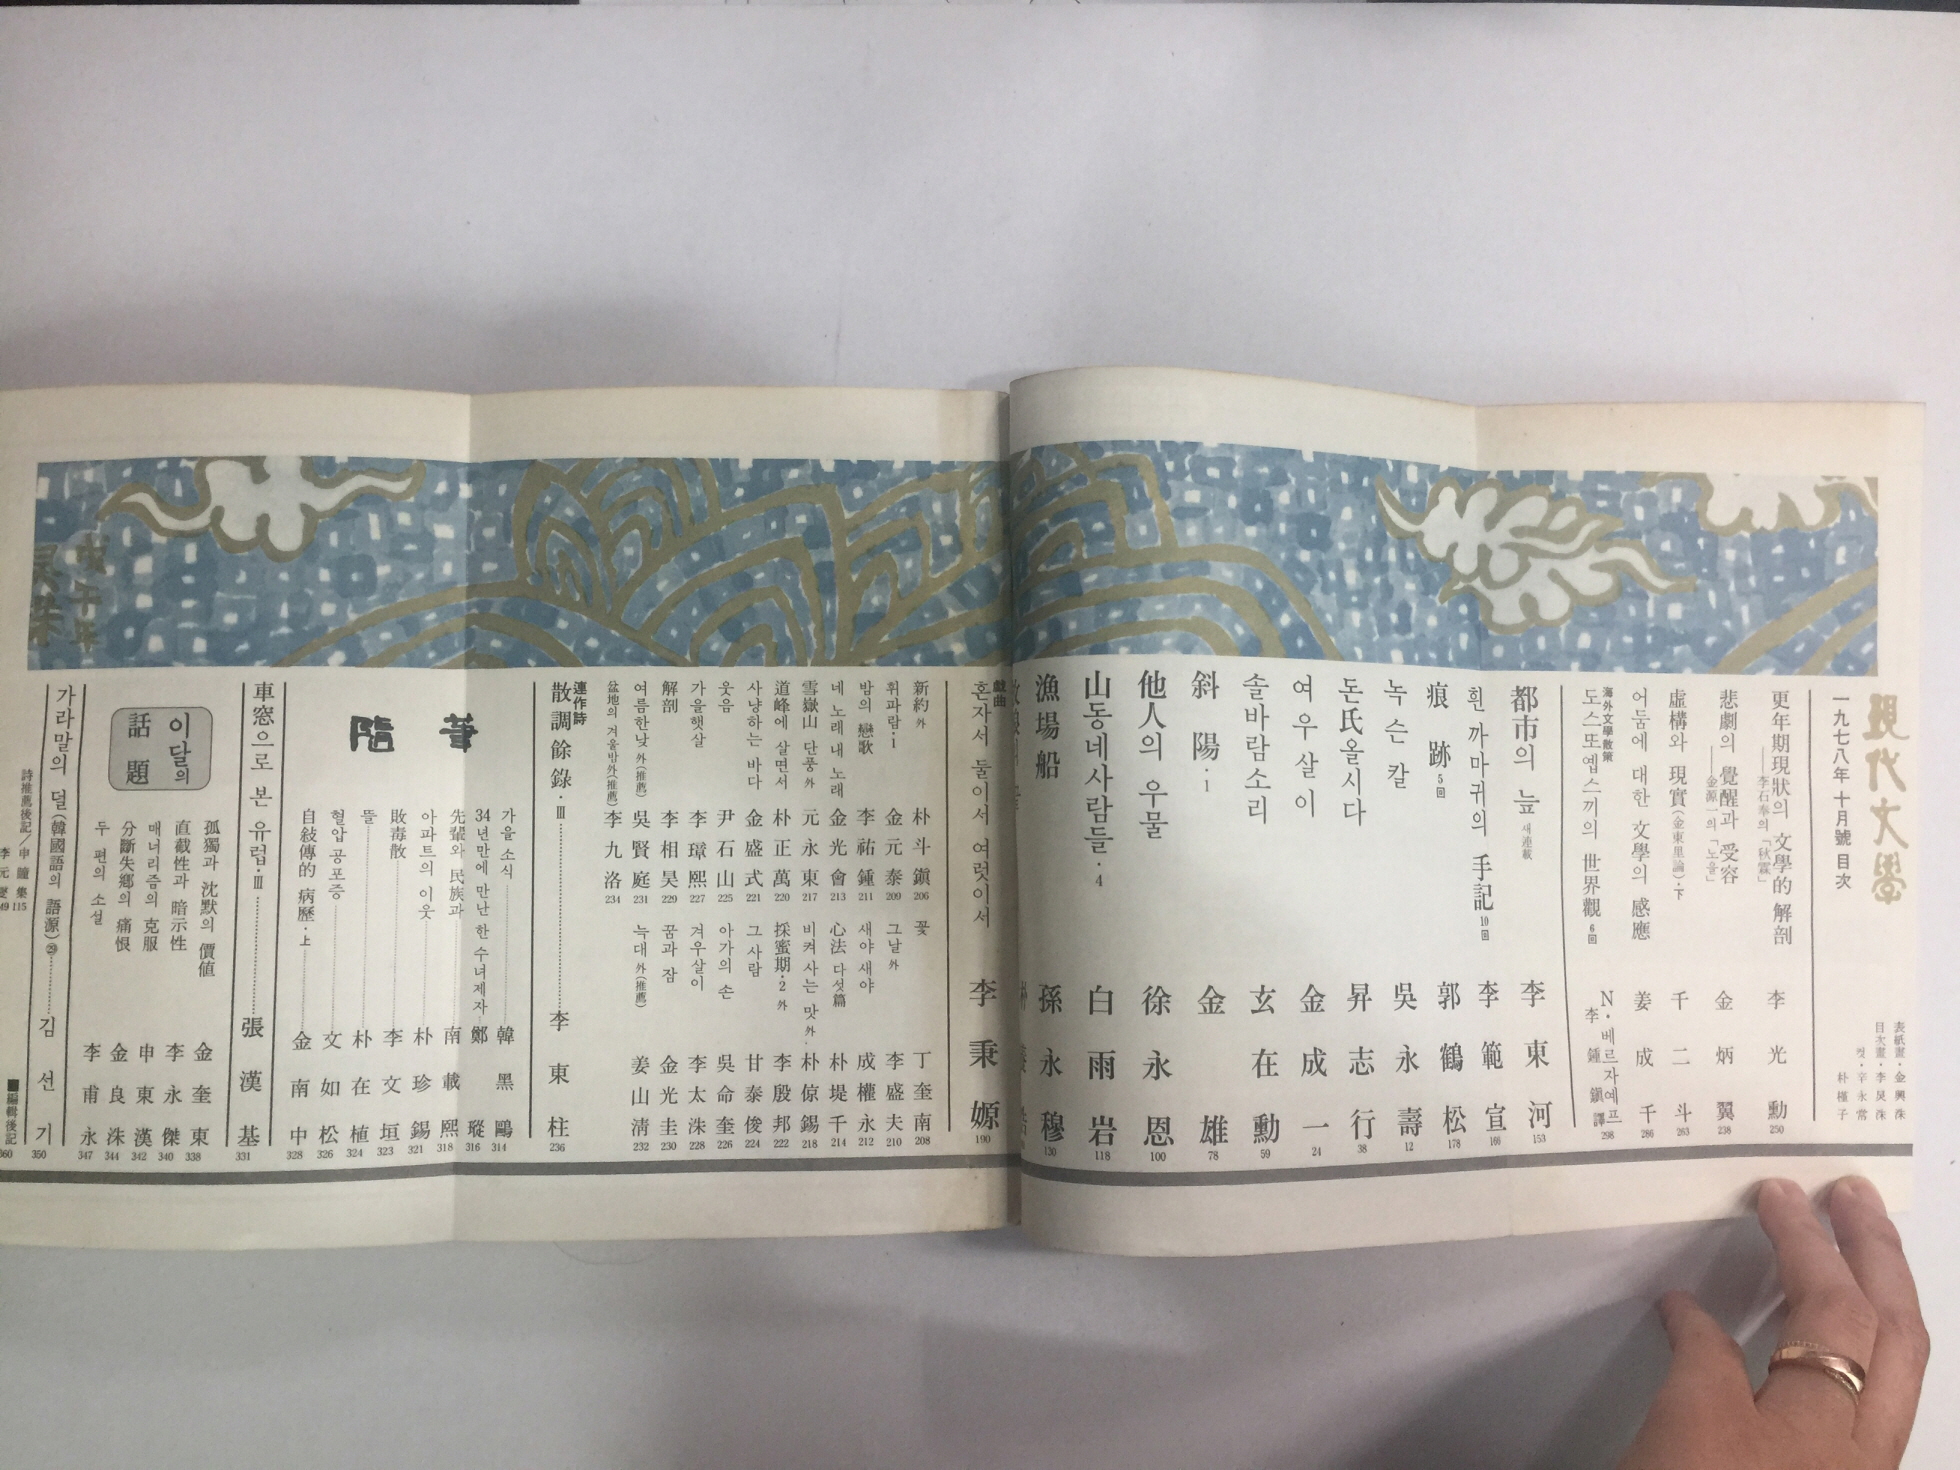 現代文學
一九七八年 十月號 目次
表紙畵·金興洙
目次畵·李炅洙
컷·辛永常
朴槿子
更年期現狀의 文學的 解剖
——李石奉의「秋霖」 李光勳 250
悲劇의 覺醒과 受容
——金源一의「노을」 金炳翼 238
虛構와 現實(金東里論)·下 千二斗 263
어둠에 대한 文學의 感應 姜成千 286
海外文學散策
도스또옙스끼의 世界觀 6回 N·베르자예프 李鍾鎭譯 298
都市의 늪 새連載 李東河 153
흰 까마귀의 手記 10回 李範宣 166
痕跡 5回 郭鶴松 178
녹슨 칼 吳永壽 12
돈氏올시다 昇志行 38
여우살이 金成一 24
솔바람소리 玄在勳 59
斜陽·1 金雄 78
他人의 우물 徐永恩 100
山동네사람들·4 白雨岩 118
漁場船 孫永穆 130
戱曲
혼자서 둘이서 여럿이서 李秉嫄 190
新約 外 朴斗鎭 206
꽃 丁奎南 208
휘파람·1 金元泰 209
그날 外 李盛夫 210
밤의 戀歌 李祐鍾 211
새야 새야 成權永 212
네 노래 내 노래 金光會 213
心法 다섯篇 朴堤千 214
雪嶽山 단풍 外 元永東 217
비켜 사는 맛 外 朴倞錫 218
道峰에 살면서 朴正萬 220
採蜜期·2 外 李殷邦 222
사냥하는 바다 金盛式 221
그 사람 甘泰俊 224
웃음 尹石山 225
아가의 손 吳命奎 226
가을햇살 李璋熙 227
겨우살이 李太洙 228
解剖 李相昊 229
꿈과 잠 金光圭 230
여름한낮 外(推薦) 吳賢庭 231
늑대 外(推薦) 姜山淸 232
盆地의 겨울밤外(推薦) 李九洛 234
連作詩
散調餘錄·Ⅲ 李東柱 236
隨筆
가을 소식 韓黑鷗 314
34년만에 만난 한 수녀제자 鄭瑽 316
先輩와 民族과 南載熙 318
아파트의 이웃 朴珍錫 321
敗毒散 李文垣 323
뜰 朴在植 324
혈압 공포증 文如松 326
自敍傳的 病歷·上 金南中 328
車窓으로 본 유럽·Ⅲ 張漢基 331
이달의 話題
孤獨과 沈默의 價値 金奎東 338
直截性과 暗示性 李永傑 340
매너리즘의 克服 申東漢 342
分斷失鄕의 痛恨 金良洙 344
두 편의 소설 李甫永 347
가라말의 덜(韓國語의 語源)㉙ 김선기 350
詩推薦後記/申瞳集 115
■編輯後記 360
戊午年